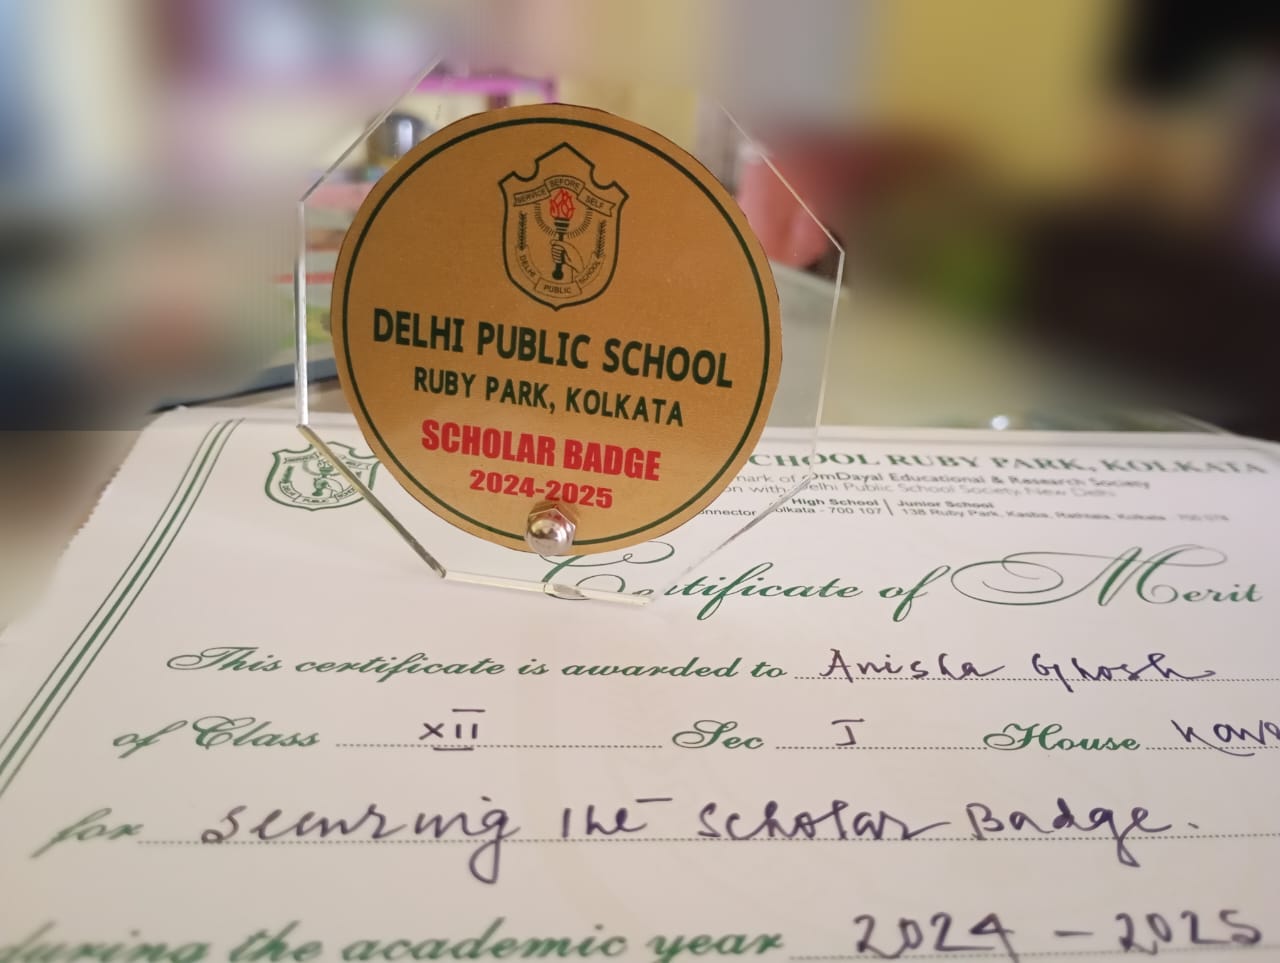 SERVICE BEFORE SELF
DELHI PUBLIC SCHOOL
DELHI PUBLIC SCHOOL
RUBY PARK, KOLKATA
SCHOLAR BADGE
2024-2025
CHOOL RUBY PARK, KOLKATA
mark of OmDayal Educational & Research Society
on with Delhi Public School Society New Delhi
High School | Junior School
onnector Kolkata - 700 107 | 138 Ruby Park, Kasba, Rathtala, Kolkata 700 078
Certificate of Merit
This certificate is awarded to Anisha Ghosh
of Class XII Sec I House
for securing the Scholar Badge.
during the academic year 2024 - 2025